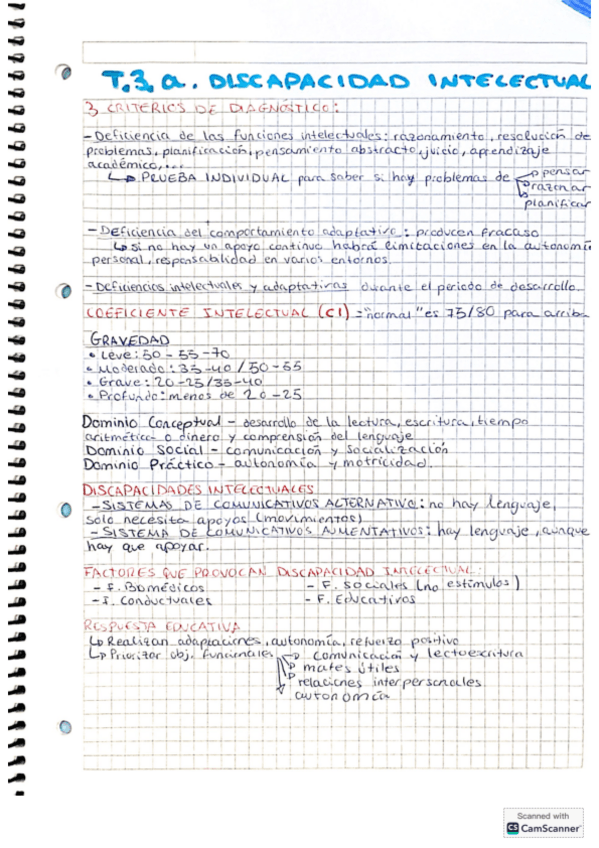 T.3.a. DISCAPACIDAD INTELECTUAL
3 CRITERIOS DE DIAGNÓSTICO:
- Deficiencia de las funciones intelectuales: razonamiento, resolución de
problemas, planificación, pensamiento abstracto, juicio, aprendizaje
académico,...
↳ PRUEBA INDIVIDUAL para saber si hay problemas de → pensar
razonar
planificar
- Deficiencia del comportamiento adaptativo: producen fracaso
↳ si no hay un apoyo continuo habrá limitaciones en la autonomía
personal, responsabilidad en varios entornos.
- Deficiencias intelectuales y adaptativas durante el periodo de desarrollo.
COEFICIENTE INTELECTUAL (CI) = "normal" es 75/80 para arriba
GRAVEDAD
• Leve: 50-55-70
• Moderado: 35-40/50-55
• Grave: 20-25/35-40
• Profundo: menos de 20-25
Dominio Conceptual - desarrollo de la lectura, escritura, tiempo
aritmética o dinero y comprensión del lenguaje
Dominio Social - comunicación y socialización
Dominio Práctico - autonomía y motricidad.
DISCAPACIDADES INTELECTUALES
- SISTEMAS DE COMUNICATIVOS ALTERNATIVO: no hay lenguaje,
solo necesita apoyos (movimientos)
- SISTEMA DE COMUNICATIVOS AUMENTATIVOS: hay lenguaje, aunque
hay que apoyar.
FACTORES QUE PROVOCAN DISCAPACIDAD INTELECTUAL:
- F. Biomédicos - F. Sociales (no estímulos)
- F. Conductuales - F. Educativos
RESPUESTA EDUCATIVA
↳ Realizan adaptaciones, autonomía, refuerzo positivo
↳ Priorizar obj. funcionales → comunicación y lectoescritura
mates útiles
relaciones interpersonales
autonomía
Scanned with
CS CamScanner